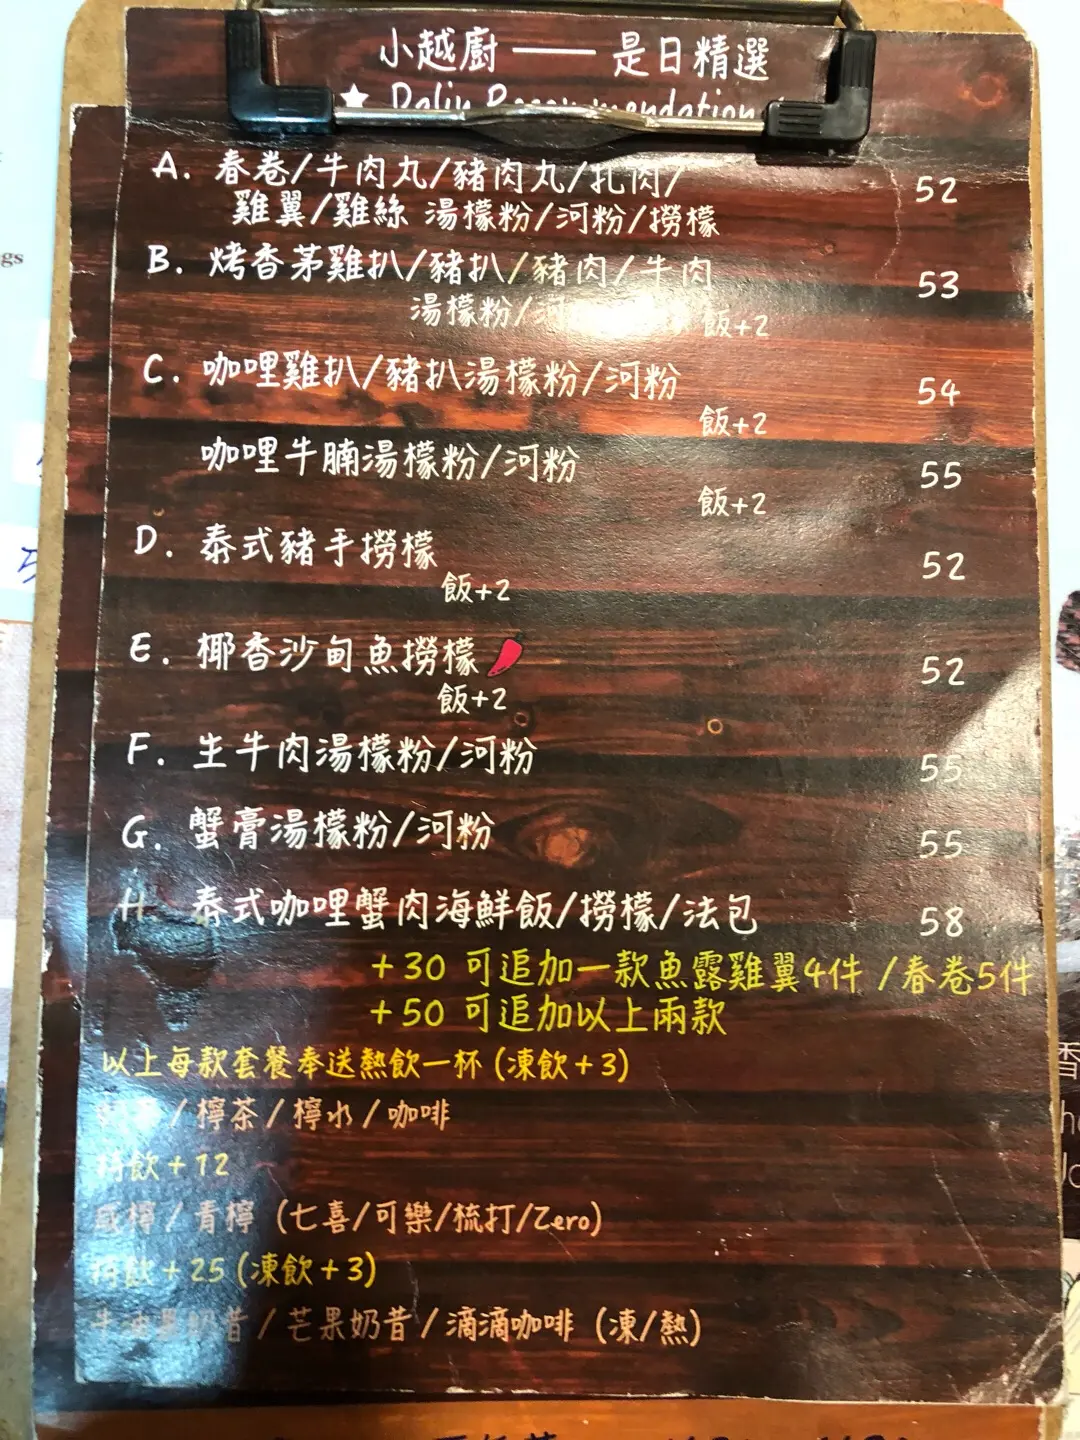 小越廚 —— 是日精選
★ Daily Recommendation
A. 春卷/牛肉丸/豬肉丸/扎肉/
雞翼/雞絲 湯檬粉/河粉/撈檬 52
B. 烤香茅雞扒/豬扒/豬肉/牛肉 53
湯檬粉/河 飯+2
C. 咖哩雞扒/豬扒湯檬粉/河粉 54
飯+2
咖哩牛腩湯檬粉/河粉 55
飯+2
D. 泰式豬手撈檬 52
飯+2
E. 椰香沙甸魚撈檬 52
飯+2
F. 生牛肉湯檬粉/河粉 55
G. 蟹膏湯檬粉/河粉 55
H 泰式咖哩蟹肉海鮮飯/撈檬/法包 58
+30 可追加一款魚露雞翼4件 /春卷5件
+50 可追加以上兩款
以上每款套餐奉送熱飲一杯 (凍飲+3)
/檸茶/檸水/咖啡
特飲+12
咸檸/青檸 (七喜/可樂/梳打/Zero)
特飲+25 (凍飲+3)
牛油果奶昔/芒果奶昔/滴滴咖啡 (凍/熱)